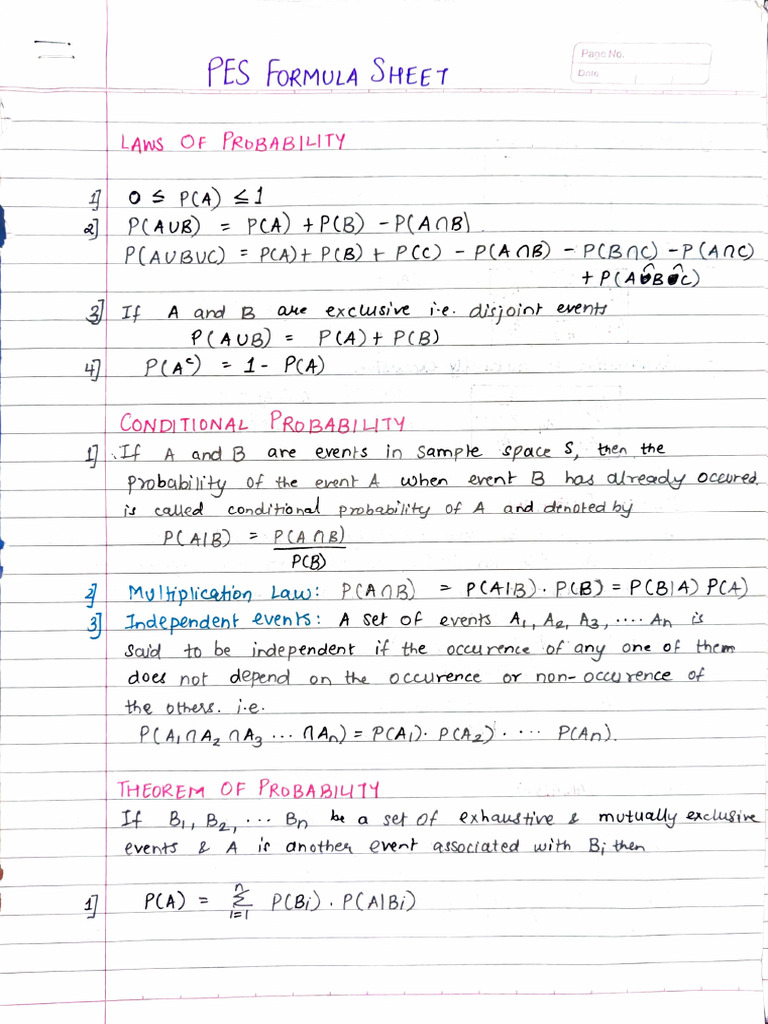 Page No.
Date
PES FORMULA SHEET
LAWS OF PROBABILITY
1] 0 ≤ P(A) ≤ 1
2] P(A∪B) = P(A) + P(B) - P(A∩B)
P(A∪B∪C) = P(A) + P(B) + P(C) - P(A∩B) - P(B∩C) - P(A∩C)
+ P(A∩B∩C)
3] If A and B are exclusive i.e. disjoint events
P(A∪B) = P(A) + P(B)
4] P(Aᶜ) = 1 - P(A)
CONDITIONAL PROBABILITY
1] If A and B are events in sample space S, then the
probability of the event A when event B has already occured.
is called conditional probability of A and denoted by
P(A|B) = P(A∩B)
P(B)
2] Multiplication Law: P(A∩B) = P(A|B). P(B) = P(B|A) P(A)
3] Independent events: A set of events A₁, A₂, A₃, .... An is
said to be independent if the occurence of any one of them
does not depend on the occurence or non-occurence of
the others. i.e.
P(A₁∩A₂∩A₃ ... ∩An) = P(A₁). P(A₂). ... P(An).
THEOREM OF PROBABILITY
If B₁, B₂, ... Bn be a set of exhaustive & mutually exclusive
events & A is another event associated with Bi then
1] P(A) = n∑i=1 P(Bi) . P(A|Bi)